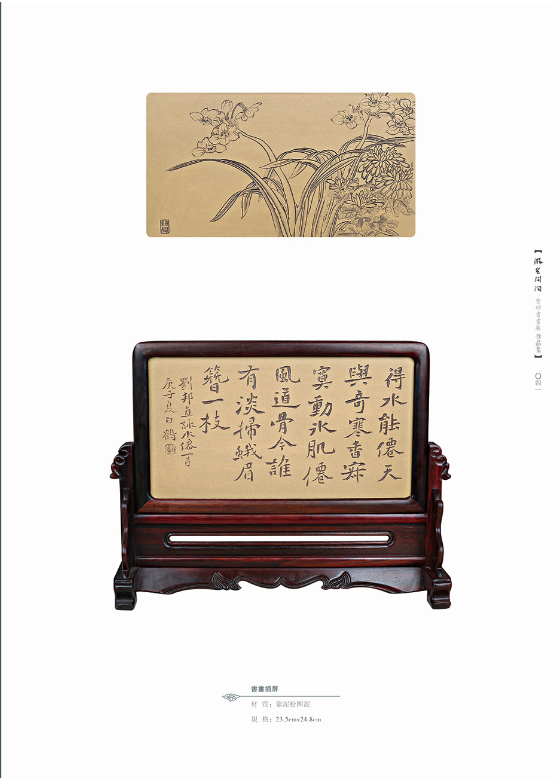 得水能僊天
與奇寒香寂
寞動冰肌僊
風道骨今誰
有淡掃蛾眉
簪一枝
劉邦直詠水僊一首
庚子
白鶴
書畫插屏
材 質：紫泥粉團泥
規 格：23.5cmx24.8cm
書畫展 作品集】
〇四一